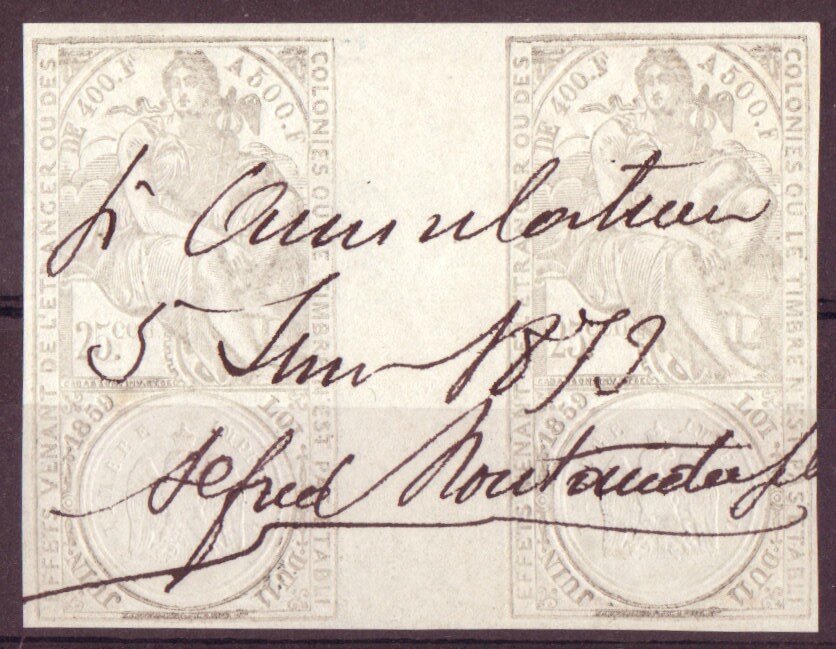 DE 400.F A 500.F
EFFETS VENANT DE L'ÉTRANGER OU DES
COLONIES OU LE TIMBRE N'EST PAS ÉTABLI
25c
LOI DU 11 JUIN 1859
DE 400.F A 500.F
EFFETS VENANT DE L'ÉTRANGER OU DES
COLONIES OU LE TIMBRE N'EST PAS ÉTABLI
25
LOI DU 11 JUIN 1859
pr Annulation
5 Juin 1879
Alfred